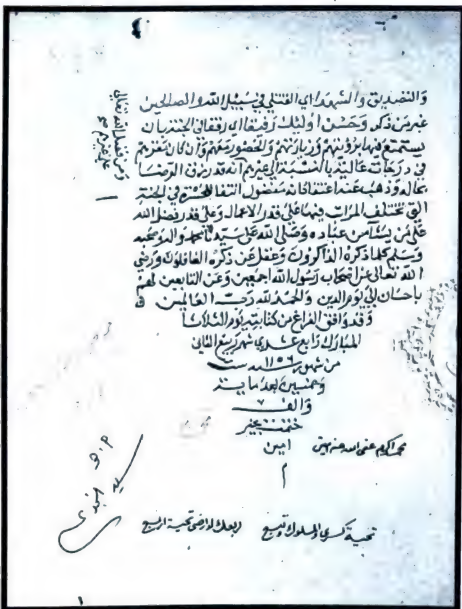 والتصديق والشهداء اي القتلى في سبيل الله والصالحين
غير من ذكر وحسن اوليك رفيقا اي رفقا في الجنة بان
يستمتع فيها برؤيتهم وزيارتهم والحضور معهم وان كان مقرهم
في درجات عالية بالنسبة الى غيرهم انه قد رزق الرضا
بحاله وذهب عنه اعتقاد انه مفضول انتفا للحسرة في الجنة
التي تختلف المراتب فيها على قدر الاعمال وعلى قدر فضل الله
على من يشآ من عباده وصلى الله على سيدنا محمد واله وصحبه
وسلم كلما ذكره الذاكرون وغفل عن ذكره الغافلون ورضي
الله تعالى عن اصحاب رسول الله اجمعين وعن التابعين لهم
باحسان الى يوم الدين والحمد لله رب العالمين
وقد وافق الفراغ من كتابته يوم الثلاثا
المبارك رابع عشري شهر ربيع الثاني
من شهور سنة ١١٥٦ ست
وخمسين بعد ماية
والف
ختمت بخير
امين
محمد اكرم عفى الله عنه
ومن فضل الله تعالى